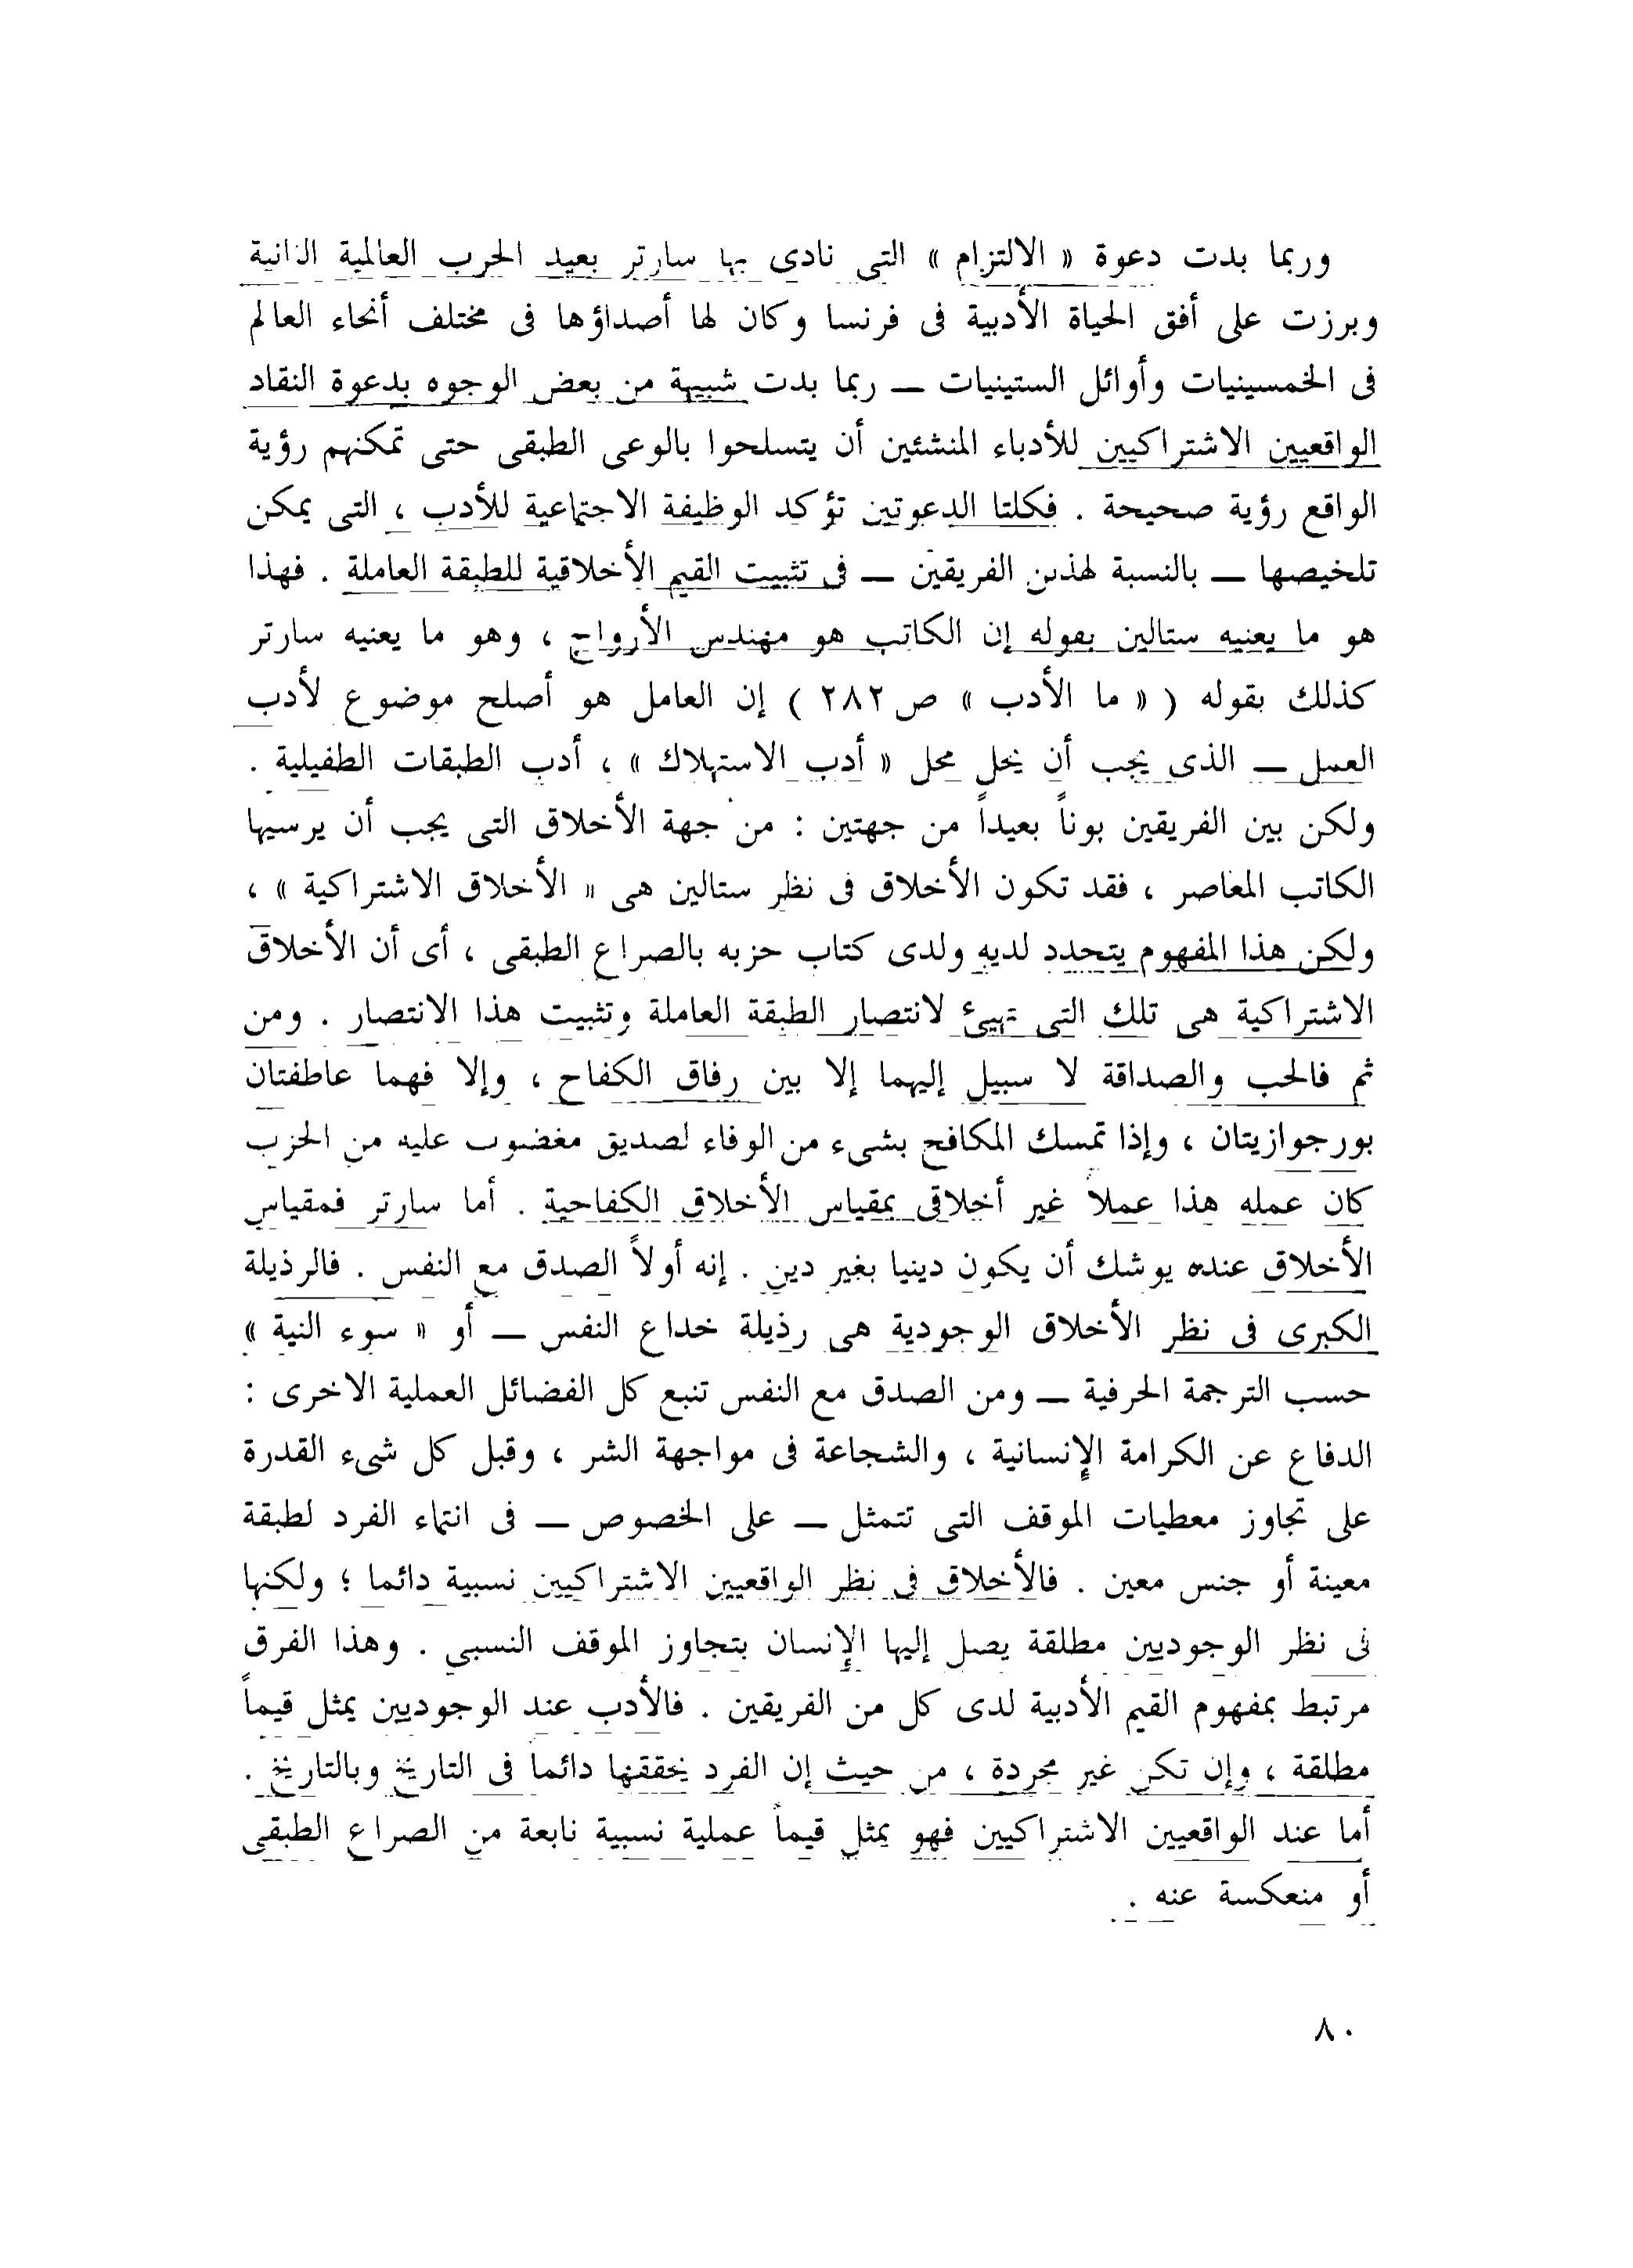 وربما بدت دعوة « الالتزام » التى نادى بها سارتر بعيد الحرب العالمية الثانية
وبرزت على أفق الحياة الأدبية فى فرنسا وكان لها أصداؤها فى مختلف أنحاء العالم
فى الخمسينيات وأوائل الستينيات — ربما بدت شبيهة من بعض الوجوه بدعوة النقاد
الواقعيين الاشتراكيين للأدباء المنشئين أن يتسلحوا بالوعى الطبقى حتى تمكنهم رؤية
الواقع رؤية صحيحة . فكلتا الدعوتين تؤكد الوظيفة الاجتماعية للأدب ، التى يمكن
تلخيصها — بالنسبة لهذين الفريقين — فى تثبيت القيم الأخلاقية للطبقة العاملة . فهذا
هو ما يعنيه ستالين بقوله إن الكاتب هو مهندس الأرواح ، وهو ما يعنيه سارتر
كذلك بقوله ( « ما الأدب » ص ٢٨٢ ) إن العامل هو أصلح موضوع لأدب
العمل — الذى يجب أن يحل محل « أدب الاستهلاك » ، أدب الطبقات الطفيلية .
ولكن بين الفريقين بوناً بعيداً من جهتين : من جهة الأخلاق التى يجب أن يرسيها
الكاتب المعاصر ، فقد تكون الأخلاق فى نظر ستالين هى « الأخلاق الاشتراكية » ،
ولكن هذا المفهوم يتحدد لديه ولدى كتاب حزبه بالصراع الطبقى ، أى أن الأخلاق
الاشتراكية هى تلك التى تهيئ لانتصار الطبقة العاملة وتثبيت هذا الانتصار . ومن
ثم فالحب والصداقة لا سبيل إليهما إلا بين رفاق الكفاح ، وإلا فهما عاطفتان
بورجوازيتان ، وإذا تمسك المكافح بشىء من الوفاء لصديق مغضوب عليه من الحزب
كان عمله هذا عملاً غير أخلاقى بمقياس الأخلاق الكفاحية . أما سارتر فمقياس
الأخلاق عنده يوشك أن يكون دينيا بغير دين . إنه أولاً الصدق مع النفس . فالرذيلة
الكبرى فى نظر الأخلاق الوجودية هى رذيلة خداع النفس — أو « سوء النية »
حسب الترجمة الحرفية — ومن الصدق مع النفس تنبع كل الفضائل العملية الاخرى :
الدفاع عن الكرامة الإنسانية ، والشجاعة فى مواجهة الشر ، وقبل كل شىء القدرة
على تجاوز معطيات الموقف التى تتمثل — على الخصوص — فى انتماء الفرد لطبقة
معينة أو جنس معين . فالأخلاق فى نظر الواقعيين الاشتراكيين نسبية دائما ؛ ولكنها
فى نظر الوجوديين مطلقة يصل إليها الإنسان بتجاوز الموقف النسبى . وهذا الفرق
مرتبط بمفهوم القيم الأدبية لدى كل من الفريقين . فالأدب عند الوجوديين يمثل قيماً
مطلقة ، وإن تكن غير مجردة ، من حيث إن الفرد يحققها دائماً فى التاريخ وبالتاريخ .
أما عند الواقعيين الاشتراكيين فهو يمثل قيماً عملية نسبية نابعة من الصراع الطبقى
أو منعكسة عنه .
٨٠